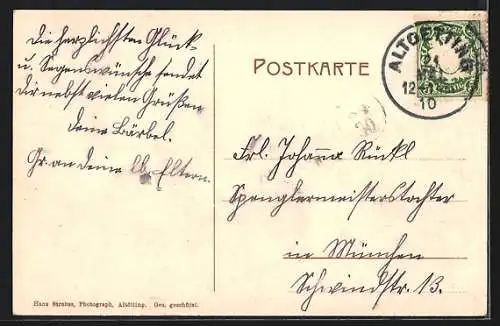 Die herzlichsten Glück-
u. Segenswünsche sendet
Dir nebst vielen Grüßen
Deine Bärbel.
Gr. an Deine lb. Eltern.
POSTKARTE
ALTOETTING
21
12
10
Frl. Johanna Rückl
Spenglermeisterstochter
in München
Schwindstr. 13.
Hans Strauss, Photograph, Altötting. Ges. geschützt.